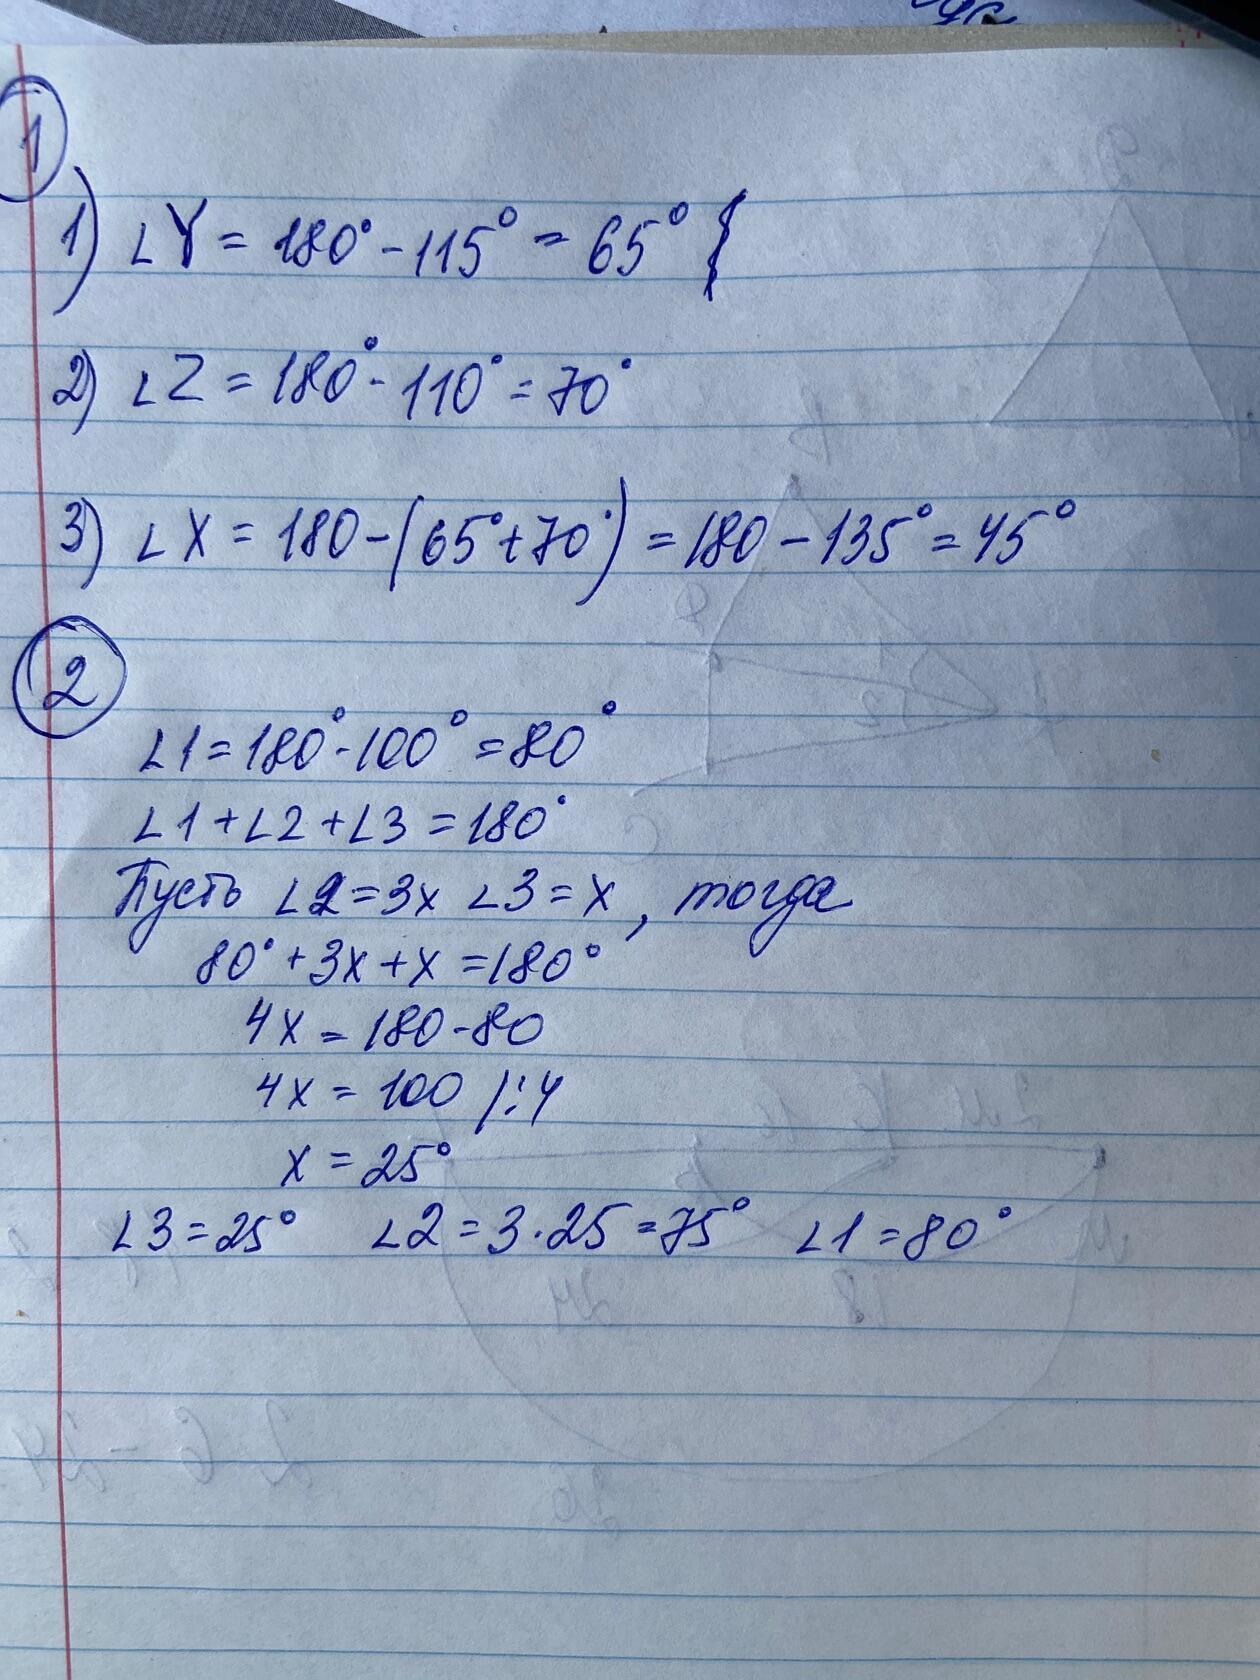 1
1) ∠Y = 180° - 115° = 65° {
2) ∠Z = 180° - 110° = 70°
3) ∠X = 180 - (65° + 70°) = 180 - 135° = 45°
2
∠1 = 180° - 100° = 80°
∠1 + ∠2 + ∠3 = 180°
Пусть ∠2 = 3x ∠3 = x, тогда
80° + 3x + x = 180°
4x = 180 - 80
4x = 100 /:4
x = 25°
∠3 = 25° ∠2 = 3·25 = 75° ∠1 = 80°